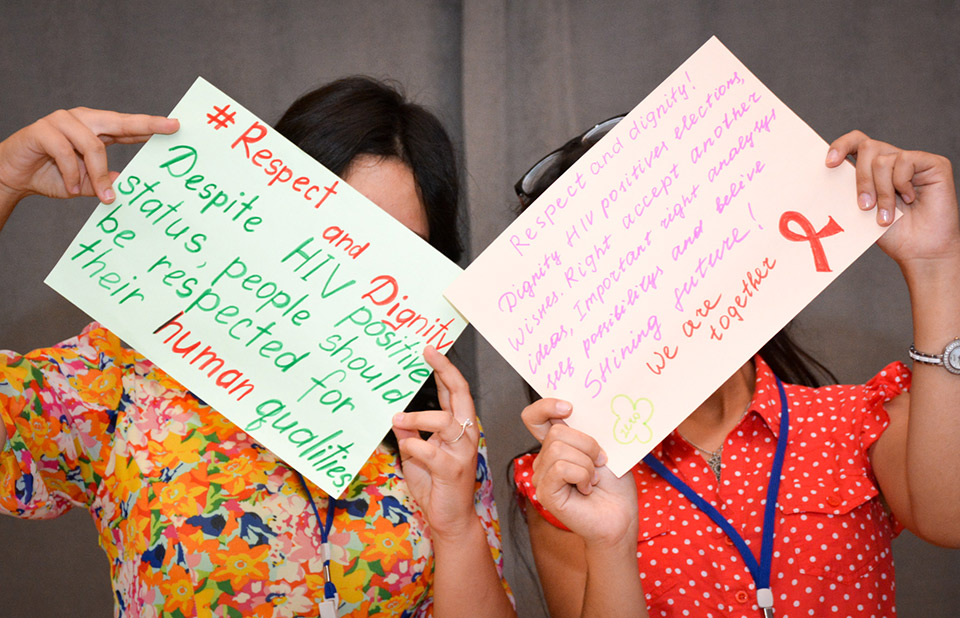 # Respect and Dignity
Despite HIV positive
status, people should
be respected for
their human qualities
Respect and dignity!
Dignity HIV positives elections,
wishes. Right accept another
ideas, Important right analysys
self posibilitys and belive
SHining future!
We are
together
zero